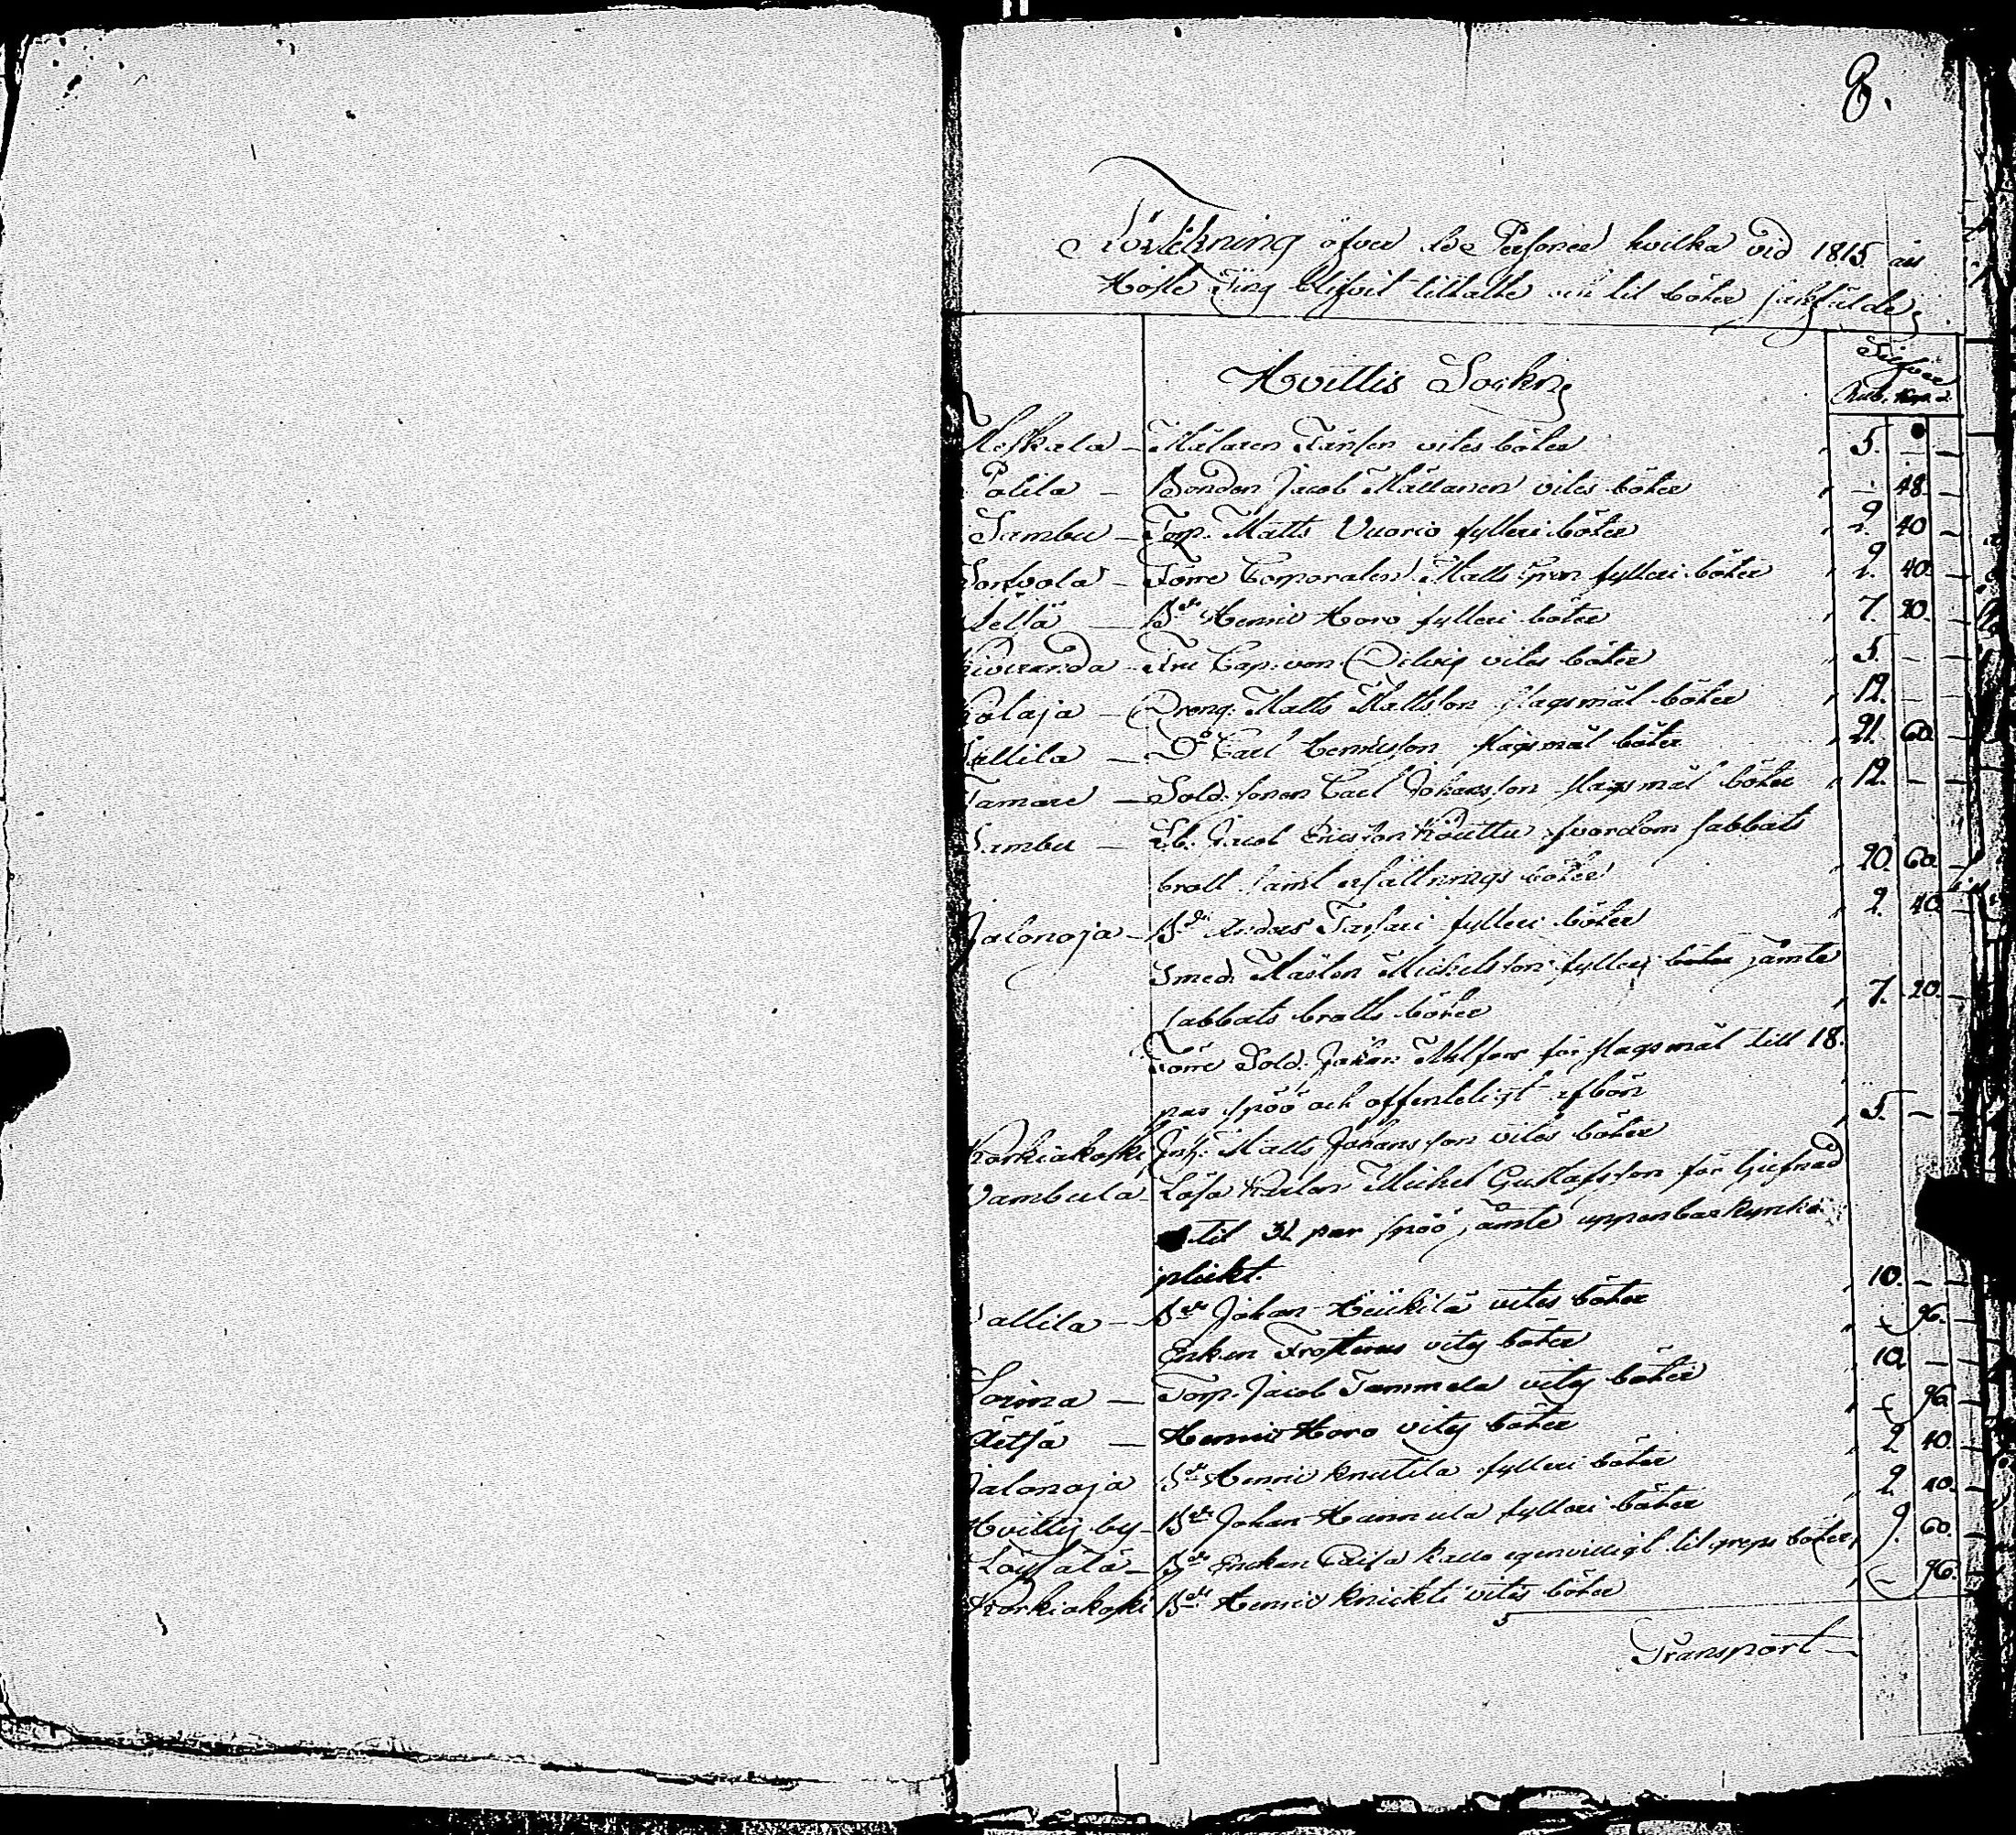 8.
Förtekning öfver de Personer hvilka vid 1815 års
Höste Ting blifvit tilltalte och til böter sakfälde
Hvittis Sockn
Silfver
Rub. Kop.
Keskala - Mälaren Farsen vites böter " 5. — —
Palila - Bonden Jacob Mattanen vites böter " — 48. —
Sambu - Torp. Matts Vuorio fylleri böter " 2. 40 —
Sonvola - Förre Corporalen Matts fylleri böter " 2. 40. —
Letsä — Bd. Henric Horo fylleri böter " 7. 20. —
- Fru Cap. von vites böter " 5. — —
Kolaja - Dreng. Matts Mattsson slagsmål böter " 12. — —
Sallila — Do Carl Henricsson slagsmål böter " 21. 60. —
Tamare — Sold. sonen Carl Johansson slagsmål böter " 12. — —
Sambu — Jacob Ericsson Köuttu svordom sabbats
brott samt ersättnings böter " 20. 60. —
Jalonoja - Bd. Anders Tarsari fylleri böter " 2. 40. —
Smed. Mästen Michelsson fylleri böter jämte
sabbats brotts böter " 7. 20. —
Förre Sold. Johan för slagsmål till 18.
par spöö och offenteligt afbön
Korkiakoski Inh. Matts Johansson vites böter " 5. —
Vambula Lösa Karlen Michel Gustafsson för tjufnad
til 31 par spöö jämte uppenbar kyrko
plickt.
Sallila — Bd. Johan Heickilä vites böter " 10. — —
Enkan Frosterus vites böter " — 96. —
Sorma — Torp. Jacob Tammela vites böter " 10. — —
Letsä — Henric Horo vites böter " — 96. —
Jalonoja Bd. Henric Knutila fylleri böter " 2 40. —
Hvittis by - Bd. Johan Hannula fylleri böter " 2. 40. —
Löysälä - Bd. Enckan Caisa Kallo egenvilligt tilgreps böter " 9. 60. —
Korkiakoski Bd. Henric Knickti vites böter " — 96. —
Transport —